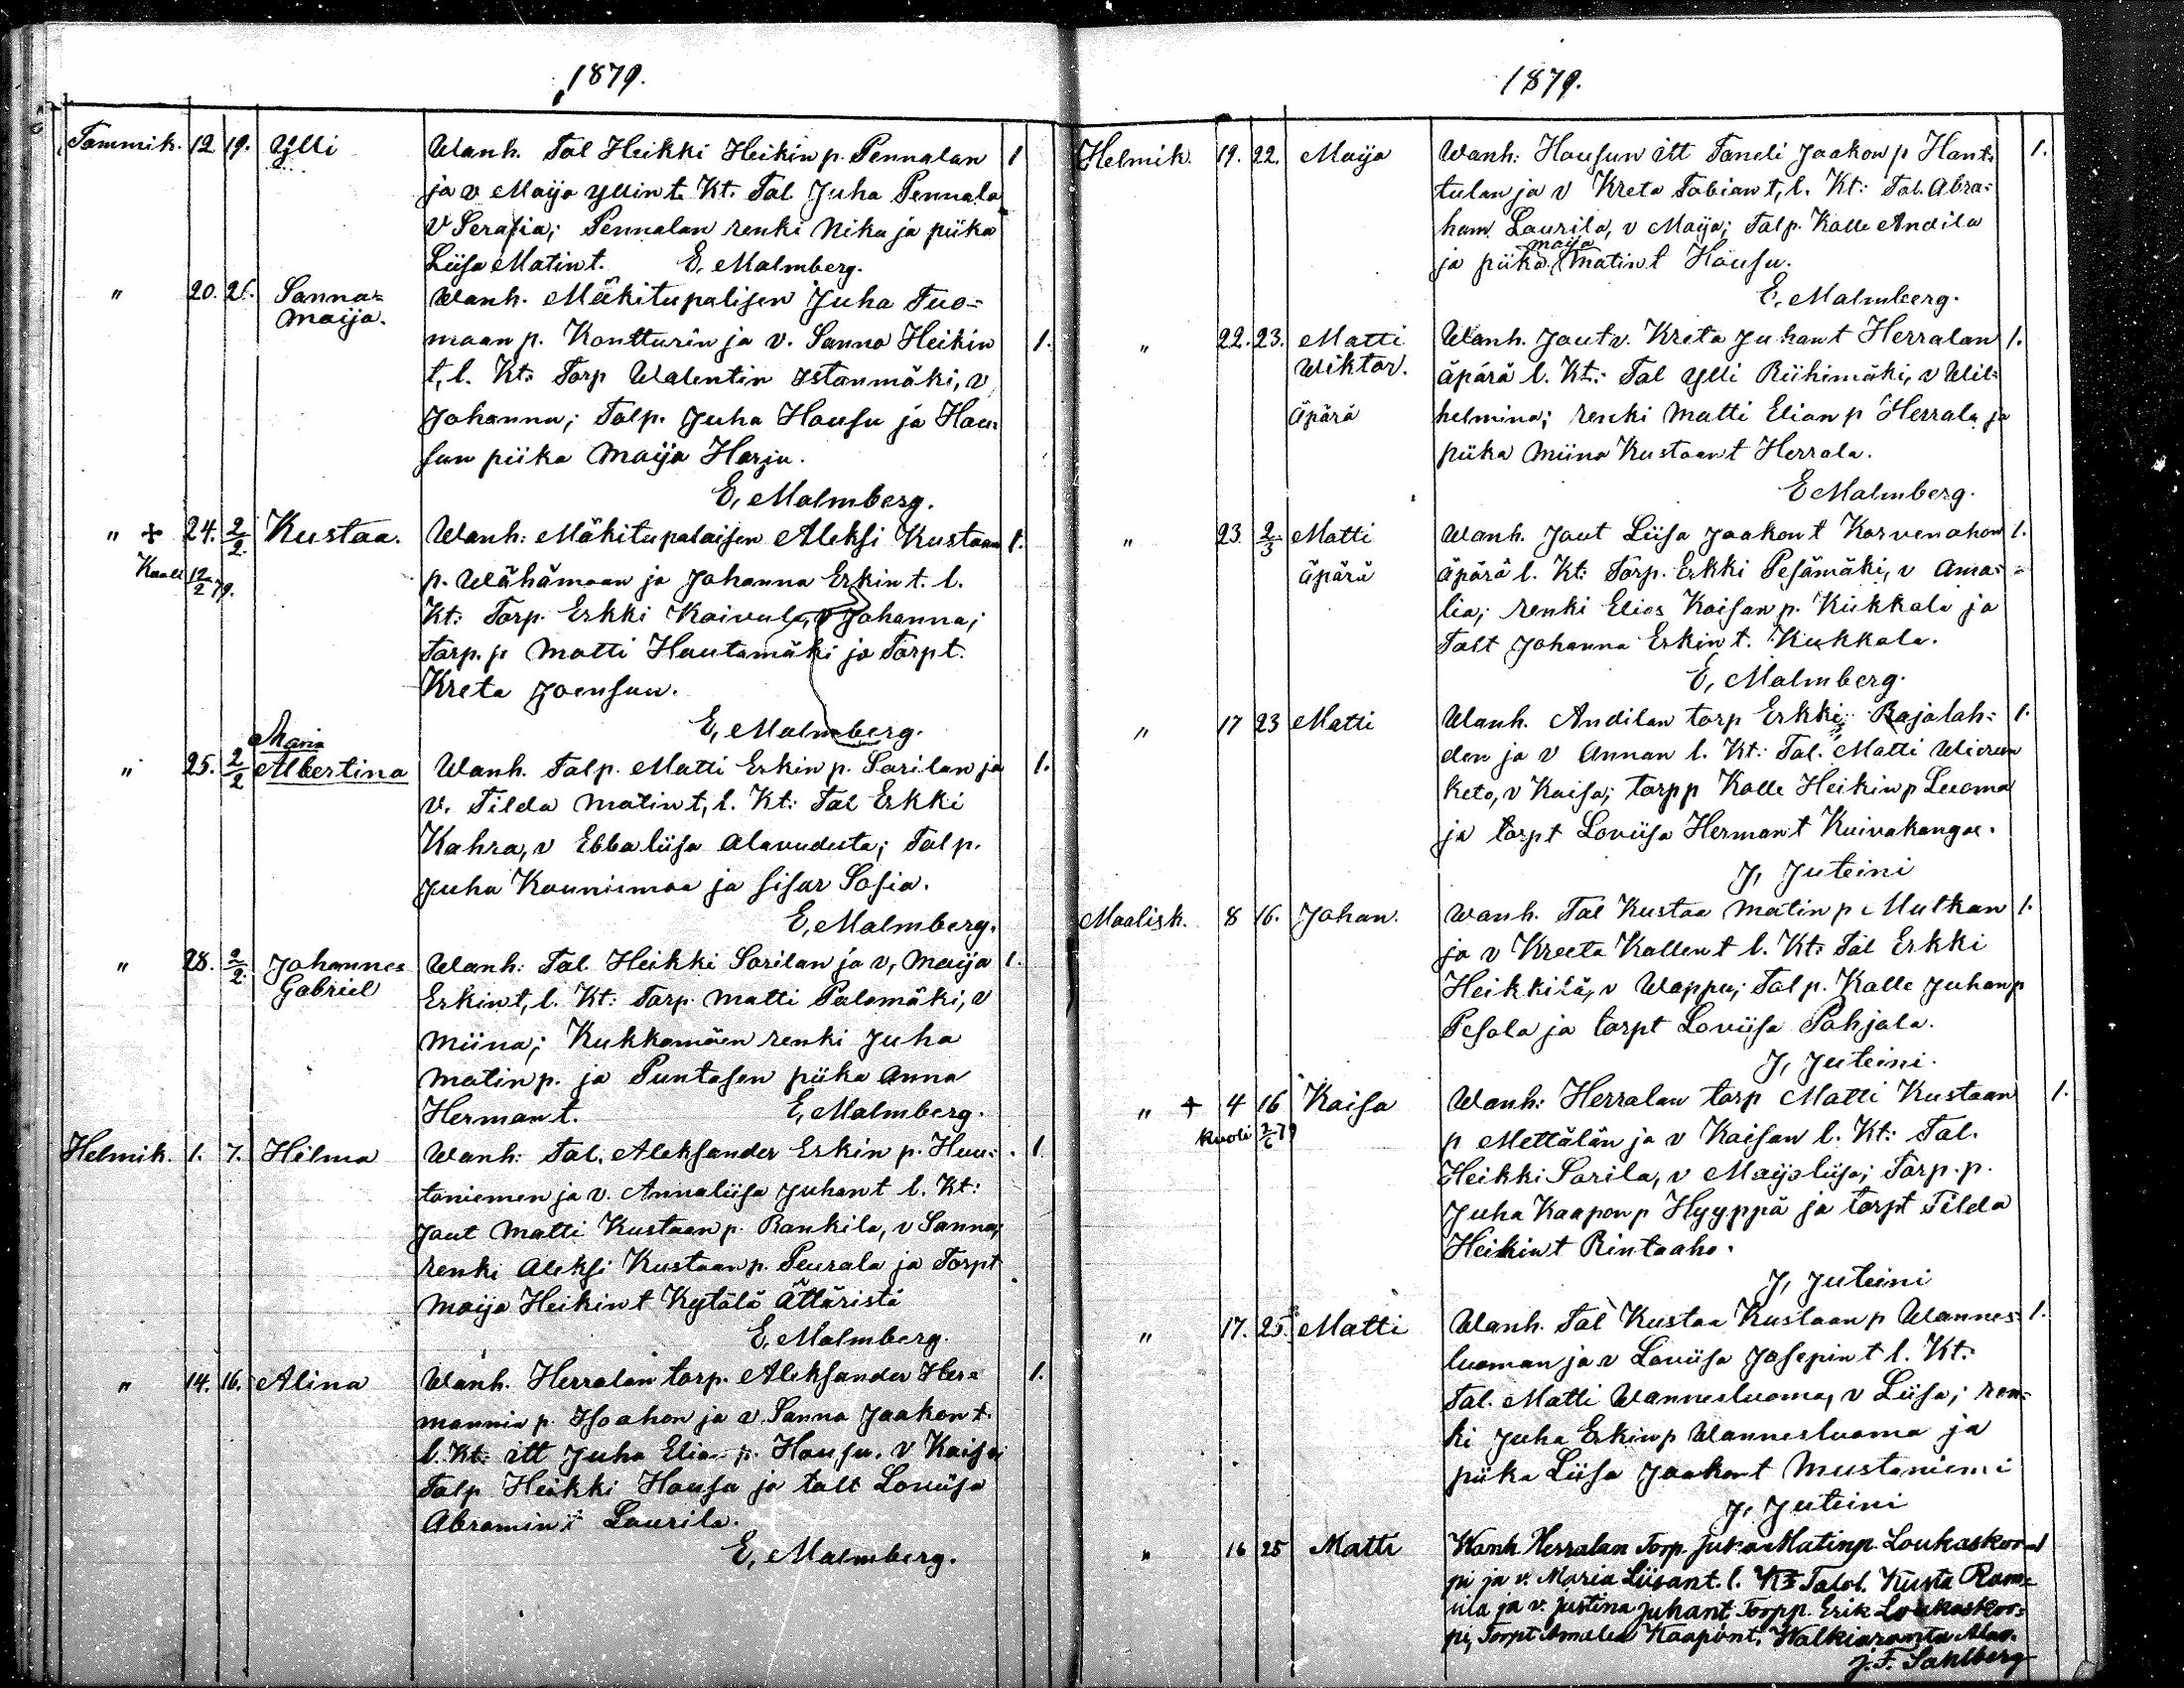 1879.
Tammik. 12 19. Ylli Wanh. Tal Heikki Heikin p. Pennalan 1
ja v Maija Yllin t. Kt: Tal. Juha Pennala
v Serafia; Pennalan renki Nika ja piika
Liisa Matin t. E, Malmberg.
" 20. 26. Sanna= Wanh. Mäkitupalisen Juha Tuo=
Maija. maan p. Kontturin ja v. Sanna Heikin 1.
t, l. Kt: Torp Walentin Istanmäki, v
Johanna; Talp. Juha Hausu ja Hau=
sun piika Maija Harju.
E, Malmberg.
" + 24. 2/2. Kustaa. Wanh: Mäkitupalaisen Aleksi Kustaan 1.
Kuoli 12/2 79. p. Wähämaan ja Johanna Erkin t. l.
Kt: Torp. Erkki Koivula, v Johanna;
Torp. p Matti Hautamäki ja Torp t.
Kreta Joensuu.
E, Malmberg.
Maria
" 25. 2/2 Albertina Wanh. Talp. Matti Erkin p. Sarilan ja 1.
v. Tilda Matin t, l. Kt: Tal Erkki
Kahra, v Ebbaliisa Alavudesta; Tal p.
Juha Kauniimaa ja sisar Sofia.
E, Malmberg.
" 28. 2/2. Johannes Wanh: Tal. Heikki Sarilan ja v, Maija 1.
Gabriel Erkin t, l. Kt: Torp. Matti Palomäki, v
Miina; Kukkamäen renki Juha
Matin p. ja Puntasen piika Anna
Herman t. E, Malmberg.
Helmik. 1. 7. Hilma Wanh: Tal. Aleksander Erkin p. Huu= 1
toniemen ja v. Annaliisa Juhan t l. Kt:
Jaut Matti Kustaan p. Rankila, v Sanna;
renki Aleksi Kustaan p. Peurala ja Torpt
Maija Heikin t Kytölä Ättäristä
E, Malmberg.
" 14. 16. Alina Wanh. Herralan torp. Aleksander Her= 1.
mannin p. Isoahon ja v. Sanna Jaakon t.
l. Kt: itt Juha Elian p. Hausu, v Kaisa;
Talp Heikki Hausu ja talt Loviisa
Abramin t Laurila.
E, Malmberg.
1879.
Helmik. 19. 22. Maija Wanh: Hausun itt Taneli Jaakon p Hant= 1.
tulan ja v Kreta Tobian t, l. Kt: Tal. Abra=
ham Laurila, v Maija; Talp. Kalle Andila
maija
ja piika Matin t Hausu.
E, Malmberg.
" 22. 23. Matti Wanh. Jaut v. Kreta Juhan t Herralan 1.
Wiktor. äpärä l. Kt: Tal Ylli Riihimäki, v Wil=
äpärä helmina; renki Matti Elian p Herrala ja
piika Miina Kustaan t Herrala.
E Malmberg.
" 23 2/3 Matti Wanh. Jaut Liisa Jaakon t Korvenahon 1.
äpärä äpärä l. Kt: Torp. Erkki Pesämäki, v Ama=
lia; renki Elias Kaisan p. Kukkola ja
Talt Johanna Erkin t. Kukkola.
E, Malmberg.
" 17 23 Matti Wanh. Andilan torp Erkki Rajalah= 1.
den ja v Annan l. Kt: Tal. Matti Wieru
keto, v Kaisa; torp p Kalle Heikin p Luoma
ja torpt Loviisa Herman t Kuivakangas.
J, Juteini
Maalisk. 8 16. Johan. Wanh. Tal Kustaa Matin p Mutkan 1.
ja v Kreeta Kallen t l. Kt: Tal Erkki
Heikkilä, v Wappu; Talp. Kalle Juhan p
Pesola ja torpt Loviisa Pohjala.
J, Juteini.
" + 4 16 Kaisa Wanh: Herralan torp Matti Kustaan 1.
kuoli 2/6 79 p Mettälän ja v Kaisan l. Kt: Tal.
Heikki Sarila, v Maijaliisa; Torp. p.
Juha Kaapon p Hyyppä ja torpt Tilda
Heikin t Rintaaho.
J, Juteini
" 17. 25. Matti Wanh. Tal Kustaa Kustaan p Wannes= 1.
luoman ja v Loviisa Josepin t l. Kt:
Tal. Matti Wannesluoma, v Liisa; ren=
ki Juha Erkin p Wannesluoma ja
piika Liisa Jaakon t Mustaniemi
J, Juteini
" 16 25 Matti Wanh. Herralan Torp. Juha Matinp. Loukaskor= 1
pi ja v. Maria Liisant. l. Kt Talol. Kusta Ram=
ula ja v. Justina Juhant Torpp. Erik Loukaskor=
pi, Torpt Amalia Kaapont, Walkiaranta Alav.
J. F. Sahlberg